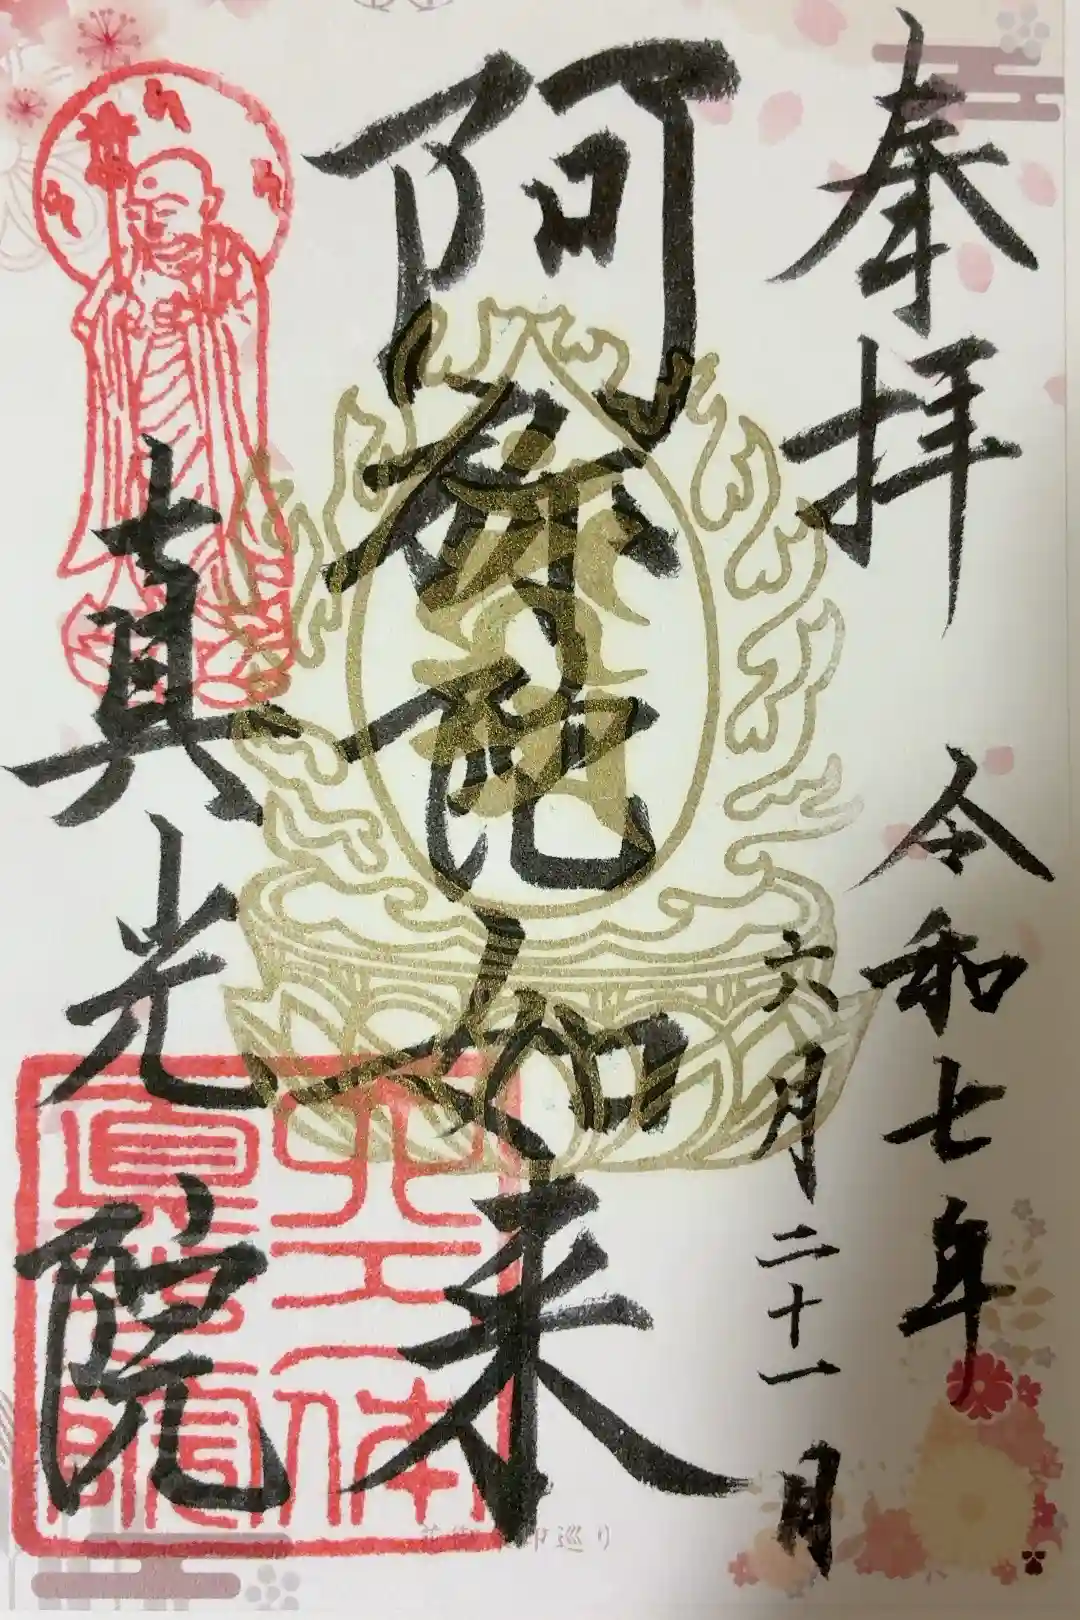 奉拝
令和七年
六月二十一日
阿弥陀如来
真光院
花御朱印巡り